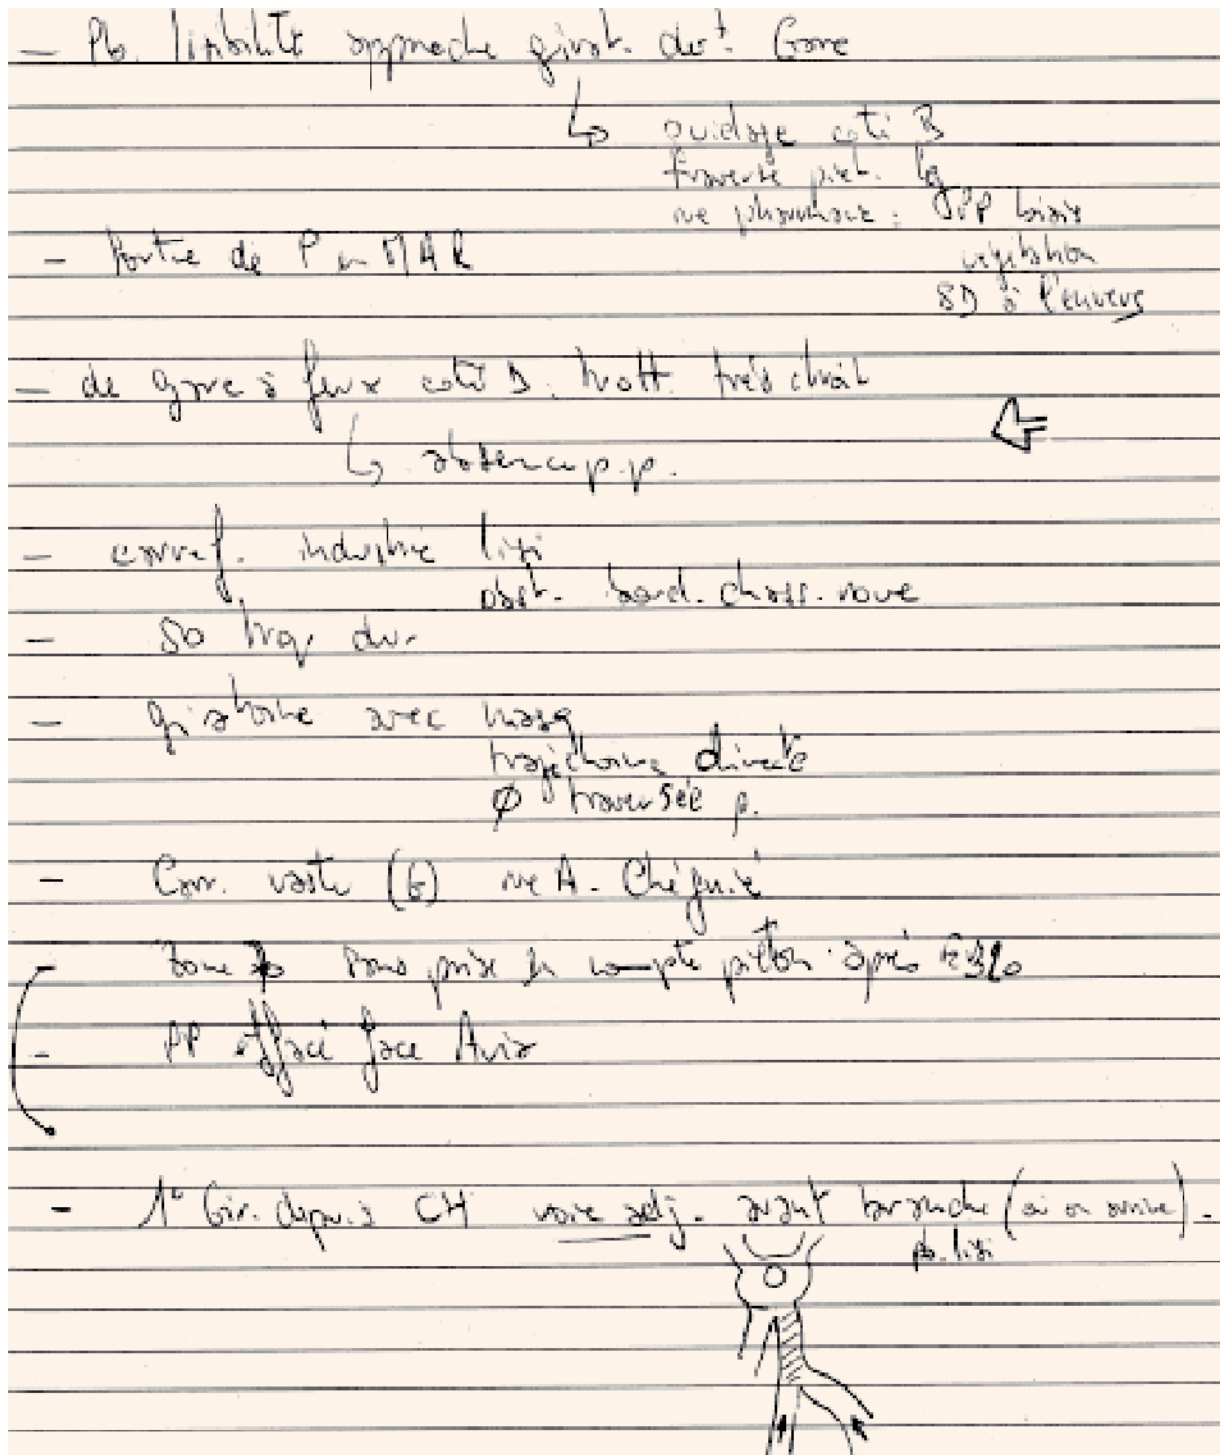 - Pb. lisibilité approche girat. devt. Gare
↳ guidage coté B
traversé piet. lg
rue pharmacie : PP biais
- Sortie de P en MAR
végétation
BD à l'envers
- de gare à feux coté D. trott. très étroit
↳ absence p.p.
- carref. industrie lisi
obst. bord. chass. roue
- 50 trop dur
- giratoire avec masq
trajectoire directe
Ø traversée p.
- Carr. vaste (G) rue A.
- zone 30 sans prise en compte piéton après
- PP effacé face Avia
- 1° Gir. depuis CH voie adj. avant branche (où on arrive).
pb. lisi